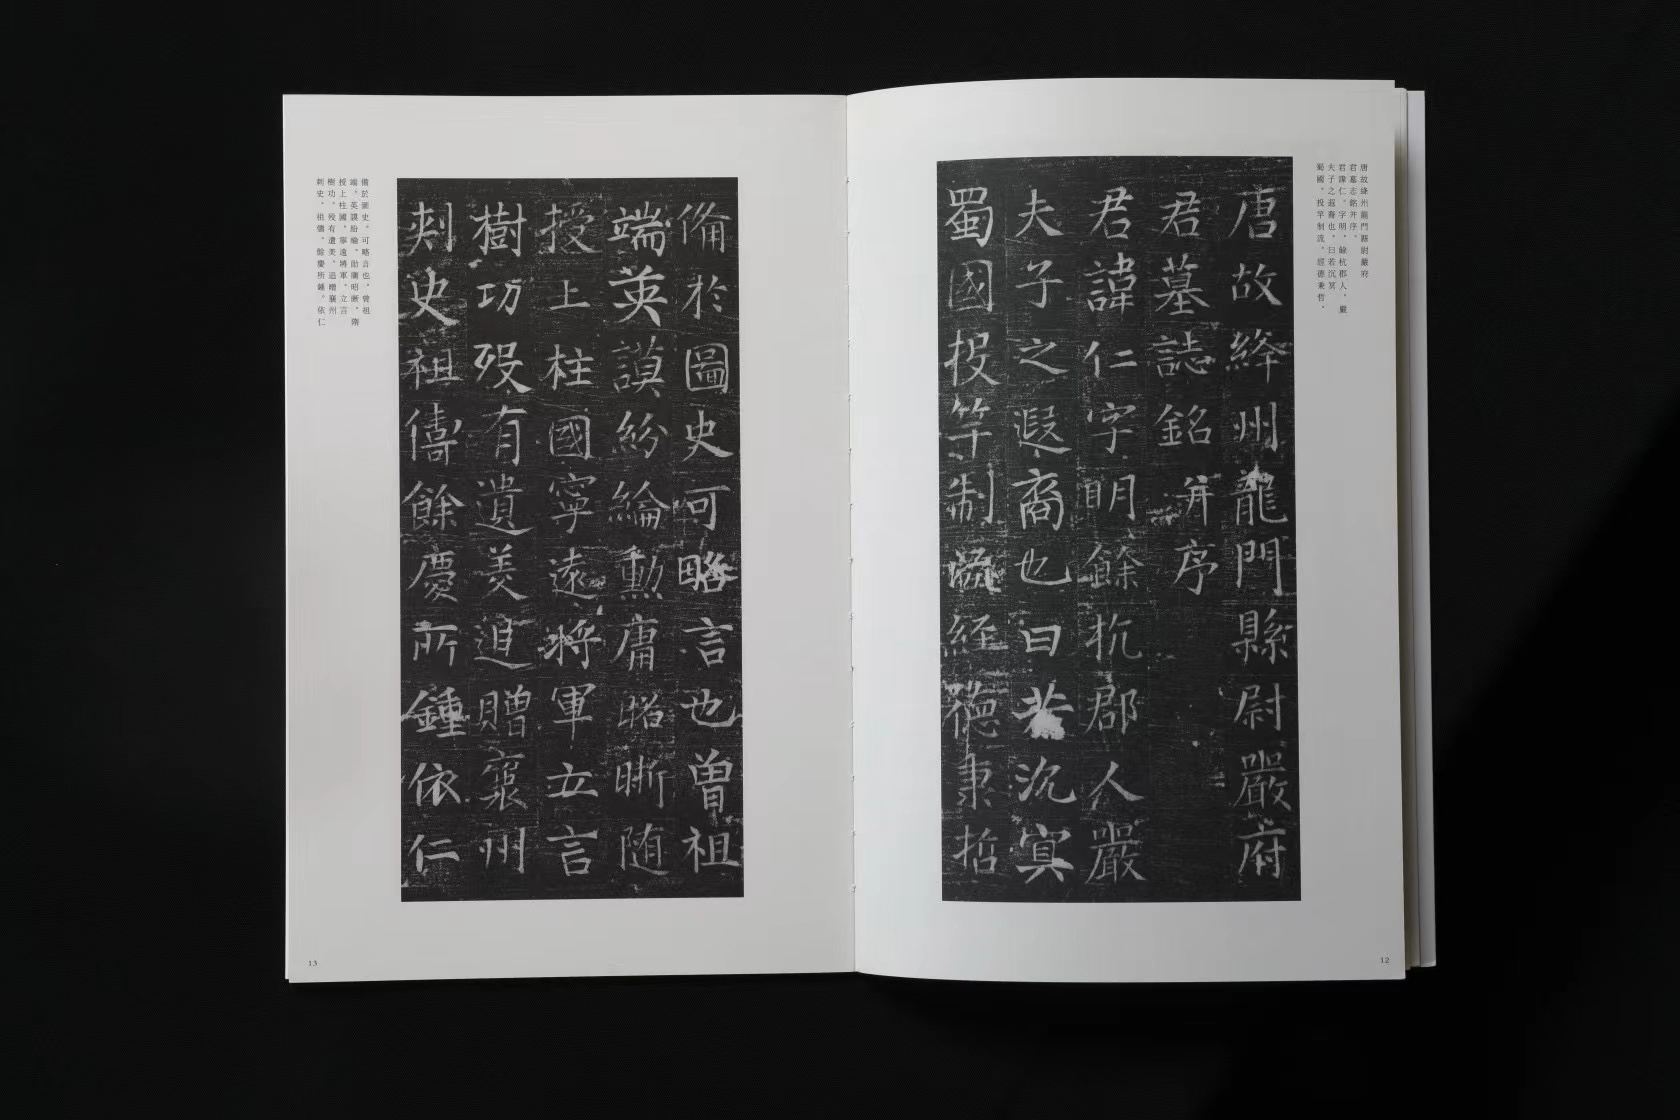 唐故絳州龍門縣尉嚴府
君墓志銘并序。
君諱仁，字明，餘杭郡人，嚴
夫子之遐裔也。曰若沉冥
蜀國，投竿制流，經德秉哲，
唐故絳州龍門縣尉嚴府
君墓誌銘并序
君諱仁字明餘杭郡人嚴
夫子之遐裔也曰若沉冥
蜀國投竿制流經德秉哲
12
俻於圖史可略言也曾祖
端英謨紛綸勳庸昭晣随
授上柱國寧遠將軍立言
樹功歿有遺美追贈襄州
刾史祖儔餘慶所鍾依仁
備於圖史，可略言也。曾祖
端，英謨紛綸，勛庸昭晰，隋
授上柱國、寧遠將軍，立言
樹功，歿有遺美，追贈襄州
刺史。祖儔，餘慶所鍾，依仁
13